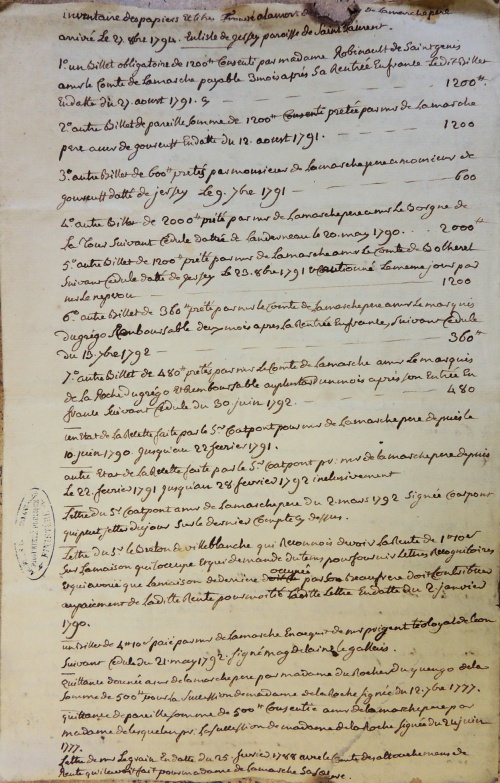 inventaire des papiers et titres trouvés à la mort de Lamarche pere
arrivé Le 27. 8bre 1794. En lisle de jersey paroisse de saint Laurent.
1.o un Billet obligatoire de 1200tt Consenti par madame Robinault de Saint genis
a mr le Comte de Lamarche payable 3 mois après sa Rentrée En france Ledit Billet
En datte du 27. aoust 1791.
1200tt
2.o autre Billet de pareille somme de 1200tt Consenti pretée par mr de Lamarche
pere a mr de En datte du 12. aoust 1791.
1200
3.o autre Billet de 600tt pretés par monsieur de Lamarche pere a monsieur de
datté de jersey Le 9. 7bre 1791
600
4.o autre Billet de 2000tt prêté par mr de Lamarche pere a mr Le Borgne de
La Tour Suivant Cédule dattée de Landerneau le 20. may 1790.
2000tt
5.o autre Billet de 1200tt prêté par mr de Lamarche a mr Le Comte de Botherel
Suivant Cédule datté de jersey Le 23. 8bre 1791 Cautionné La meme jour par
mr Le nepvou
1200
6.o autre Billet de 360tt prêté par mr Le Comte de Lamarche pere a mr Le marquis
du grégo Remboursable deux mois apres La Rentrée En france, Suivant Cédule
du 10. 7bre 1792
360tt
7.o autre Billet de 480tt pretés par mr Le Comte de Lamarche a mr Le marquis
de La Roche du grégo et Remboursable au plutard un mois après son Entrée En
france Suivant Cédule du 30 juin 1792.
480
un Etat de La Recette faite par le Sr Coatpont pour mr de Lamarche pere depuis le
10. juin 1790. jusqu'au 22 février 1791.
autre Etat de La Recette faite par le Sr Coatpont pr. mr de la marche pere depuis
Le 22 fevrier 1791 jusqu'au 28 fevrier 1792 inclusivement
Lettre du Sr Coatpont a mr de Lamarche pere du 2. mars 1792 Signée Coatpont
qui peut jetter du jour Sur le dernier Compte cy dessus.
Lettre du Sr Le Breton de villeblanche qui Reconnois devoir La Rente de
Sur La maison qu'il occupe et qui demande du tems pour fournir Lettres Recognitoires
et qui avoue que La maison de derriere occupée par son beaufrere doit Contribuer
au paiement de La ditte Rente pour moitié La ditte Lettre En datte du 2 janvier
1790.
un billet de payé par mr de Lamarche En acquit de mr prigent de Leon
Suivant Cédule du 21. may 1792. Signé magdelaine le gallais.
quittance donnée a mr de lamarche pere par madame du Rocher du quengo de la
Somme de 500tt pour La Succession de madame de la Roche signée du 12. 7bre 1777.
quittance de pareille somme de 500tt Consentie a mr de la marche pere par
madame de pr. La Succession de madame de la Roche Signée du 24 juin
1777.
Lettre de mr Le grain En datte du 25. fevrier 1788 avec le Compte des attouchemens de
Rente qu'il avoit fait pour madame de Lamarche Sa Soeur.